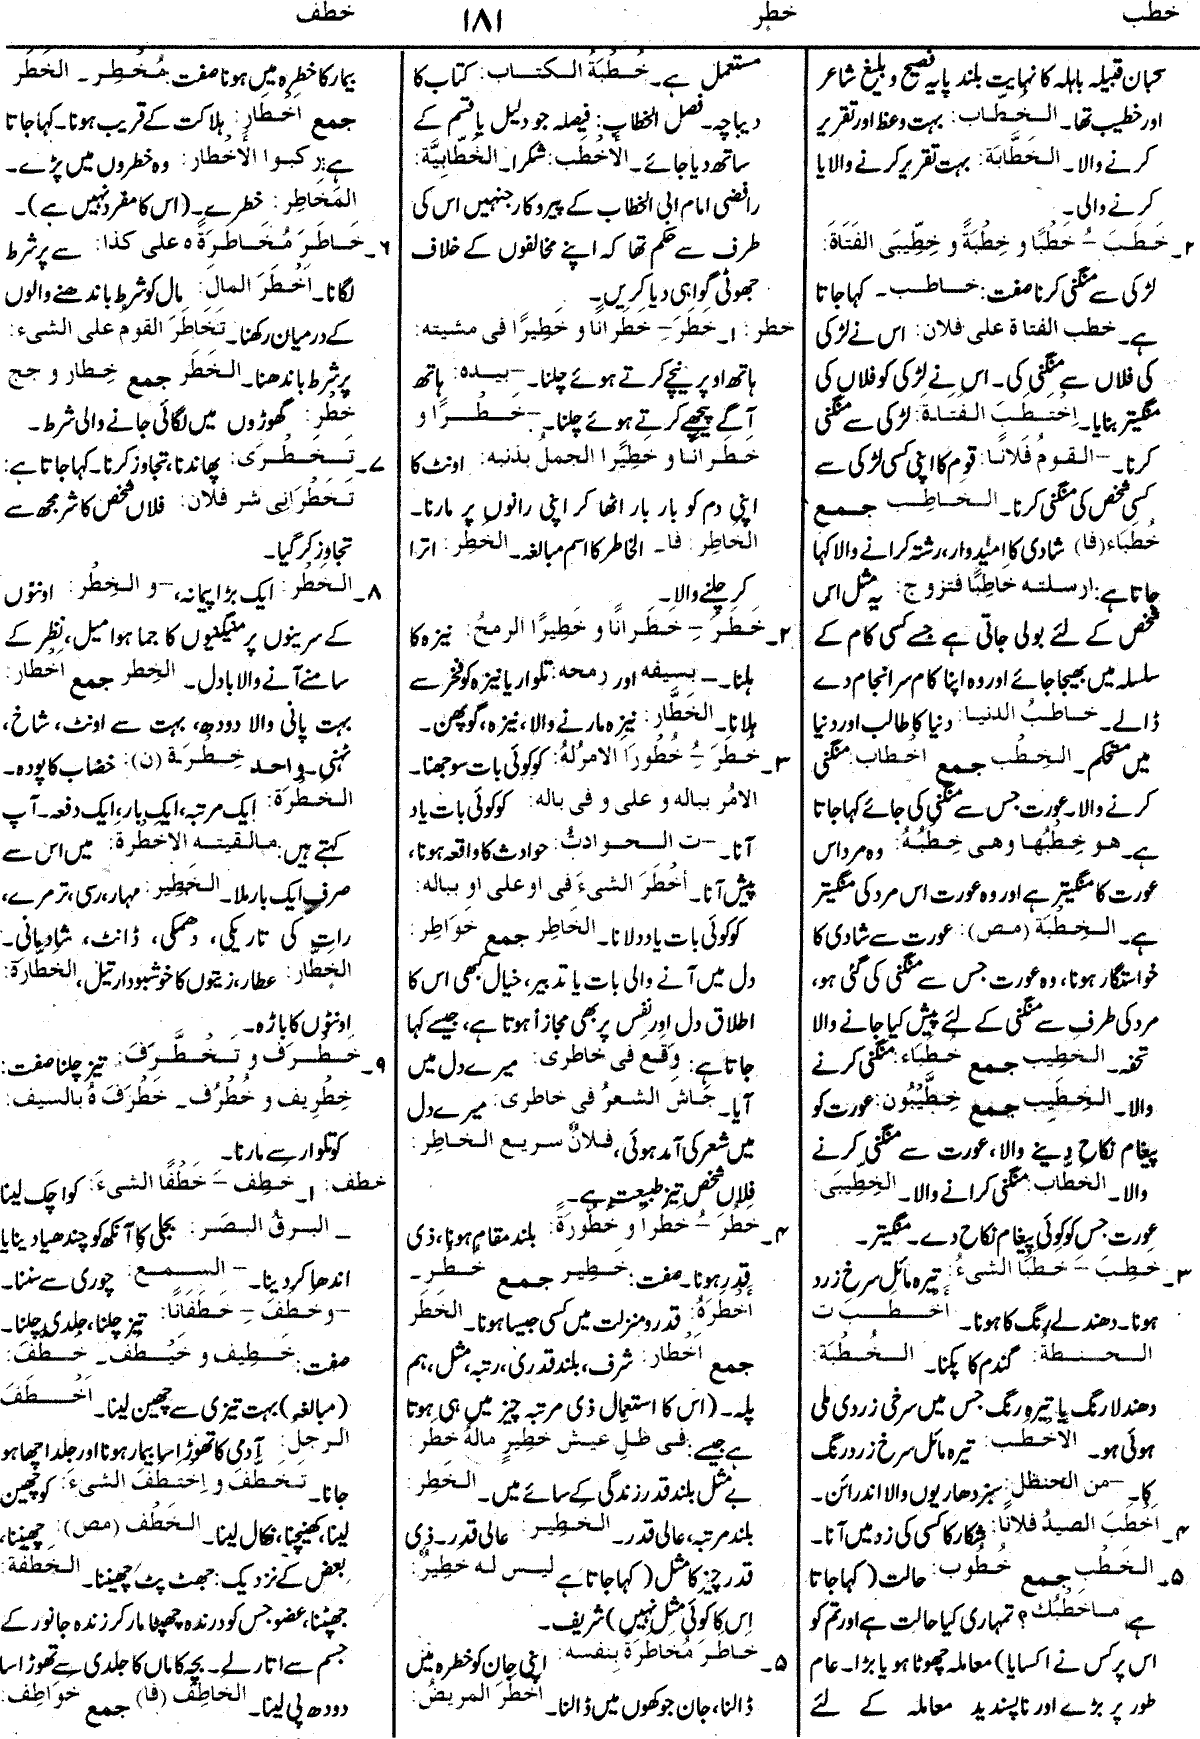 خطب
خطر
۱۸۱
خطف
سحبان قبیلہ باہلہ کا نہایت بلند پایہ فصیح و بلیغ شاعر
اور خطیب تھا۔ الخَطّاب: بہت وعظ اور تقریر
کرنے والا۔ الخَطَّابَة: بہت تقریر کرنے والا یا
کرنے والی۔
۲۔ خَطَبَ ُ خَطْبًا و خِطْبَةً و خِطِّیبَی الفَتَاةَ:
لڑکی سے منگنی کرنا صفت: خاطب۔ کہا جاتا
ہے۔ خطب الفتاة علی فلان: اس نے لڑکی
کی فلاں سے منگنی کی۔ اس نے لڑکی کو فلاں کی
منگیتر بنایا۔ اِخْتَطَبَ الفَتاةَ: لڑکی سے منگنی
کرنا۔ –القومُ فُلَانًا: قوم کا اپنی کسی لڑکی سے
کسی شخص کی منگنی کرنا۔ الخاطِب جمع
خُطَبَاء (فا) شادی کا امیدوار، رشتہ کرانے والا کہا
جاتا ہے: ارسلتہ خاطِبًا فتزوج: یہ مثل اس
شخص کے لئے بولی جاتی ہے جسے کسی کام کے
سلسلہ میں بھیجا جائے اور وہ اپنا کام سرانجام دے
ڈالے۔ خاطبُ الدنیا: دنیا کا طالب اور دنیا
میں متحکم۔ الخِطْب جمع اخطاب: منگنی
کرنے والا۔ عورت جس سے منگنی کی جائے کہا جاتا
ہے۔ هو خِطْبُها وهی خِطْبُهُ: وہ مرد اس
عورت کا منگیتر ہے اور وہ عورت اس مرد کی منگیتر
ہے۔ الخِطْبَة (مص): عورت سے شادی کا
خواستگار ہونا، وہ عورت جس سے منگنی کی گئی ہو،
مرد کی طرف سے منگنی کے لئے پیش کیا جانے والا
تحفہ۔ الخَطِیب جمع خُطَبَاء: منگنی کرنے
والا۔ الخِطِّیب جمع خِطِّیْبُون: عورت کو
پیغام نکاح دینے والا، عورت سے منگنی کرنے
والا۔ الخَطاب: منگنی کرانے والا۔ الخِطِّیبَی:
عورت جس کو کوئی پیغام نکاح دے۔ منگیتر۔
۳۔ خَطِبَ – خَطَبًا الشیءُ: تیرہ مائل سرخ زرد
ہونا۔ دھندلے رنگ کا ہونا۔ أخطبت
الحنطةُ: گندم کا پکنا۔ الخُطْبَة:
دھندلا رنگ یا تیرہ رنگ جس میں سرخی زردی ملی
ہوئی ہو۔ الأخطب: تیرہ مائل سرخ زرد رنگ
کا۔ –من الحنظل: سبز دھاریوں والا اندرائن۔
۴۔ اَخطَبَ الصیدُ فلانًا: شکار کا کسی کی زد میں آنا۔
۵۔ الخَطْب جمع خُطُوب: حالت (کہا جاتا
ہے ماخَطْبُك؟ تمہاری کیا حالت ہے اور تم کو
اس پر کس نے اکسایا) معاملہ چھوٹا ہو یا بڑا۔ عام
طور پر بڑے اور ناپسندید معاملہ کے لئے
مستعمل ہے۔ خُطْبَةُ الكتاب: کتاب کا
دیباچہ۔ فصل الخطاب: فیصلہ جو دلیل یا قسم کے
ساتھ دیا جائے۔ الأَخْطَب: شکرا۔ الخَطّابِیَّة:
رافضی امام ابی الخطاب کے پیروکار جنہیں اس کی
طرف سے حکم تھا کہ اپنے مخالفوں کے خلاف
جھوٹی گواہی دیا کریں۔
خطر: ۱۔ خَطَرَ – خَطَرانًا و خَطِیرًا فی مشیتہ:
ہاتھ اوپر نیچے کرتے ہوئے چلنا۔ –بیدہ: ہاتھ
آگے پیچھے کرتے ہوئے چلنا۔ –خَطْرًا و
خَطَرانًا و خَطِیْرًا الجملُ بذنبہ: اونٹ کا
اپنی دم کو بار بار اٹھا کر اپنی رانوں پر مارنا۔
الخاطِر: فا۔ الخاطر کا اسم مبالغہ۔ الخَطِر: اترا
کر چلنے والا۔
۲۔ خَطَرَ – خَطَرانًا و خَطِیرًا الرمحُ: نیزہ کا
ہلنا۔ – بسیفہ اور رمحہ: تلوار یا نیزہ کو فخر سے
ہلانا۔ الخَطَّار: نیزہ مارنے والا، نیزہ، گوپھن۔
۳۔ خَطَرَ – خُطُورًا الامرُلہ: کو کوئی بات سوجھنا۔
الامرُ ببالہ و علی و فی بالہ: کو کوئی بات یاد
آنا۔ –ت الحوادثُ: حوادث کا واقعہ ہونا،
پیش آنا۔ أخْطَرَ الشیءَ فی او علی او ببالہ:
کو کوئی بات یاد دلانا۔ الخَاطِر جمع خَوَاطِر:
دل میں آنے والی بات یا تدبیر، خیال کبھی اس کا
اطلاق دل اور نفس پر بھی مجازاً ہوتا ہے، جیسے کہا
جاتا ہے: وَقَعَ فی خاطری: میرے دل میں
آیا۔ جَاش الشعرُ فی خاطری: میرے دل
میں شعر کی آمد ہوئی، فلانٌ سریع الخاطِر:
فلاں شخص تیز طبیعت ہے۔
۴۔ خَطُرَ – خَطَرا و خُطُورَةً: بلند مقام ہونا، ذی
قدر ہونا۔ صفت: خَطِیر جمع خَطَر۔
أخْطَرَہُ: قدر و منزلت میں کسی جیسا ہونا۔ الخَطَر
جمع اَخطار: شرف، بلند قدری، رتبہ، مثل، ہم
پلہ۔ (اس کا استعمال ذی مرتبہ چیز میں ہی ہوتا
ہے جیسے: فی ظلِ عیش خطیرٍ مالہُ خَطر:
بے مثل بلند قدر زندگی کے سائے میں۔ الخَطِر:
بلند مرتبہ، عالی قدر۔ الخَطِیر: عالی قدر۔ ذی
قدر چیز کا مثل (کہا جاتا ہے لیس لہ خطِیرٌ:
اس کا کوئی مثل نہیں) شریف۔
۵۔ خاطَرَ مُخاطَرَةً بِنفسہ: اپنی جان کو خطرہ میں
ڈالنا، جان جوکھوں میں ڈالنا۔ أخطَرَ المریضُ:
بیمار کا خطرہ میں ہونا صفت: مُخْطِر۔ الخَطَر
جمع اخطار: ہلاکت کے قریب ہونا۔ کہا جاتا
ہے: رکبوا الأخطار: وہ خطروں میں پڑے۔
المَخَاطِر: خطرے۔ (اس کا مفرد نہیں ہے)۔
۶۔ خَاطَرَ مُخَاطَرَةً ہ علی کذا: سے پر شرط
لگانا۔ أخْطَرَ المالَ: مال کو شرط باندھنے والوں
کے درمیان رکھنا۔ تَخَاطَرَ القومُ علی الشیء:
پر شرط باندھنا۔ الخَطَر جمع خِطار و جج
خُطُر: گھوڑوں میں لگائی جانے والی شرط۔
۷۔ تَخَطْرَى: پھاندنا، تجاوز کرنا۔ کہا جاتا ہے:
تَخَطَّرَانِی شر فلان: فلاں شخص کا شر مجھ سے
تجاوز کر گیا۔
۸۔ الخَطْر: ایک بڑا پیمانہ، –و الخِطْر: اونٹوں
کے سرینوں پر مینگنیوں کا جما ہوا میل، نظر کے
سامنے آنے والا بادل۔ الخِطر جمع أخطار:
بہت پانی والا دودھ، بہت سے اونٹ، شاخ،
ٹہنی۔ واحد خِطْرَة (ن): خضاب کا پودہ۔
الخَطْرَة: ایک مرتبہ، ایک بار، ایک دفعہ۔ آپ
کہتے ہیں: مالقیتہ الاخطرة: میں اس سے
صرف ایک بار ملا۔ الخَطِیر: مہار، رسی، ترمرے،
رات کی تاریکی، دھمکی، ڈانٹ، شادیانی۔
الخَطّار: عطار، زیتوں کا خوشبودار تیل، الخَطّارَة:
اونٹوں کا باڑہ۔
۹۔ خَطْرَفَ و تَخَطْرَفَ: تیز چلنا صفت:
خِطْرِیف و خُطْرُف۔ خَطْرَفَ ہُ بالسیف:
کو تلوار سے مارنا۔
خطف: ۱۔ خَطِفَ – خَطْفًا الشیءَ: کو اچک لینا
– البرقُ البصَرَ: بجلی کا آنکھ کو چندھیا دینا یا
اندھا کر دینا۔ – السمعَ: چوری سے سننا۔
–و خَطَفَ – خَطَفانًا: تیز چلنا، جلدی چلنا۔
صفت: خَطِیف و خَیْطَف۔ خَطَّفَ:
(مبالغہ) بہت تیزی سے چھین لینا۔ اَخْطَفَ
الرجلُ: آدمی کا تھوڑا سا بیمار ہونا اور جلد اچھا ہو
جانا۔ تَخَطَّفَ و اِختطَفَ الشیءَ: کو چھین
لینا، کھینچنا، نکال لینا۔ الخَطْف (مص): چھیننا،
بعض کے نزدیک: جھٹ پٹ چھیننا۔ الخَطْفَة:
جھپٹنا، عضو جس کو درندہ جھپٹا مار کر زندہ جانور کے
جسم سے اتار لے۔ بچہ کا ماں کا جلدی سے تھوڑا سا
دودھ پی لینا۔ الخاطِف (فا) جمع خَوَاطِف: